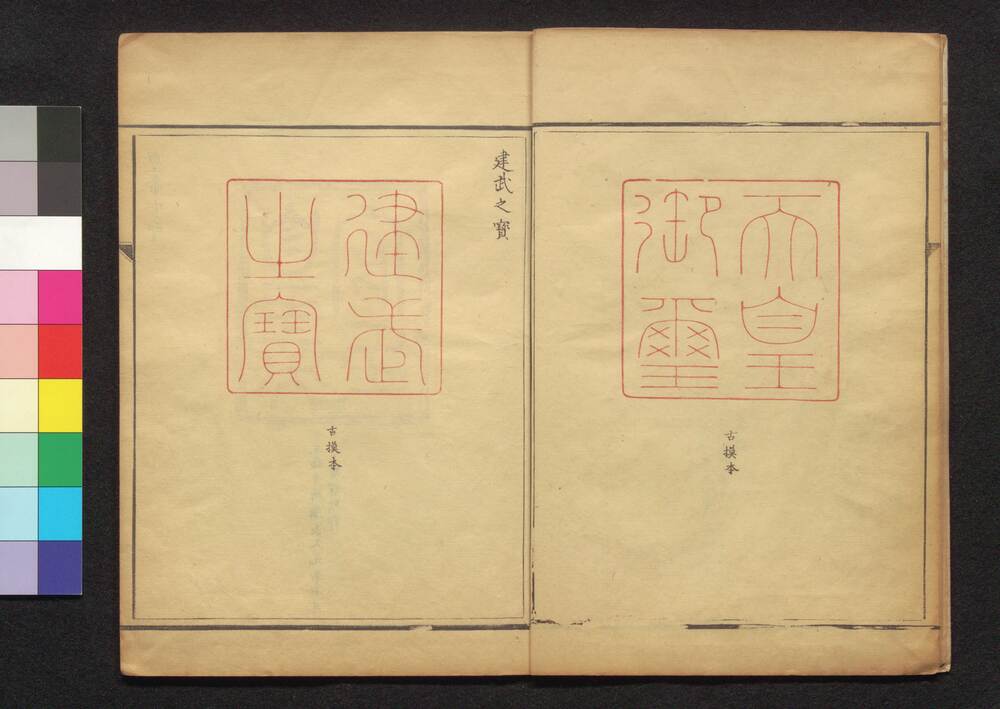 天皇
御璽
古摸本
建武之寶
建武
之寶
古摸本